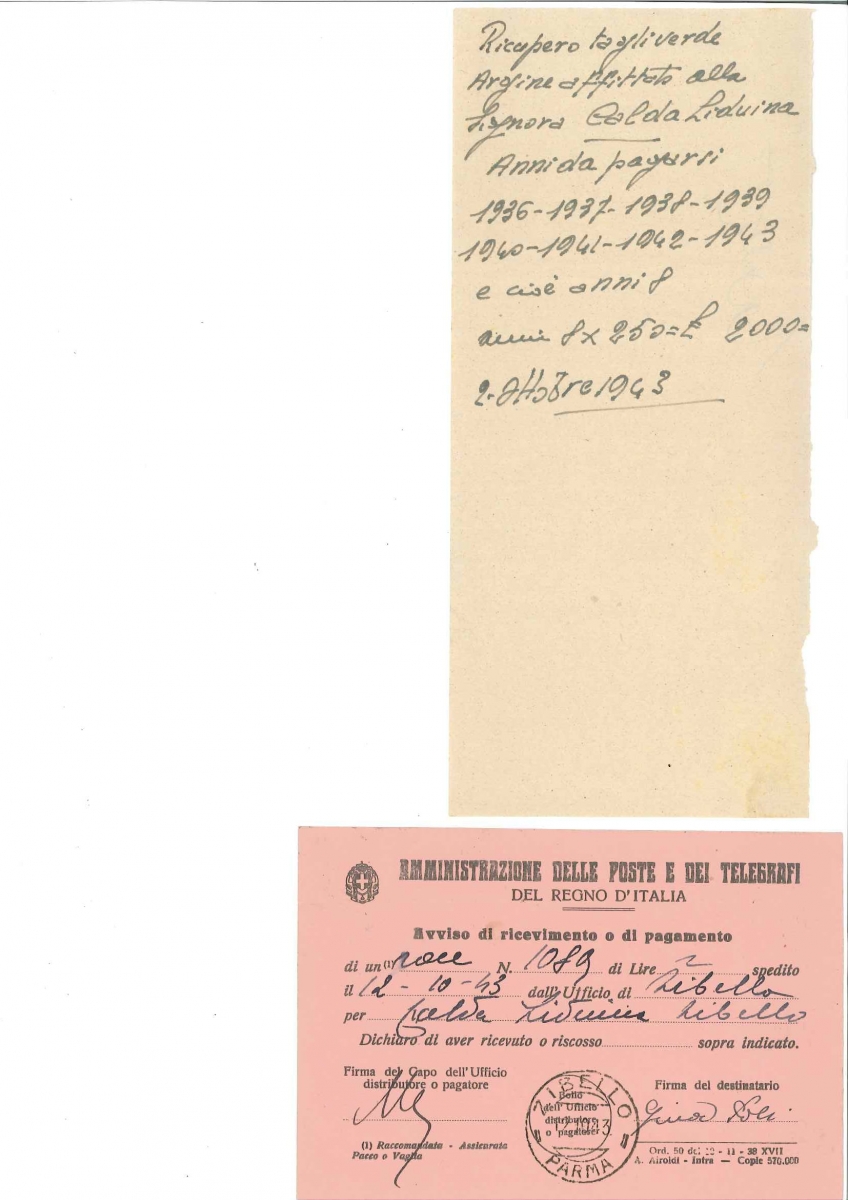 Ricupero tagli verde
Argine affittato alla
Signora Calda Liduina
Anni da pagarsi
1936-1937-1938-1939
1940-1941-1942-1943
e cioè anni 8
anni 8 x 250=£ 2000=
2-Ottobre 1943
AMMINISTRAZIONE DELLE POSTE E DEI TELEGRAFI
DEL REGNO D'ITALIA
Avviso di ricevimento o di pagamento
di un (1) racc N. 1089 di Lire spedito
il 12-10-43 dall'Ufficio di Zibello
per Calda Liduina Zibello
Dichiaro di aver ricevuto o riscosso sopra indicato.
Firma del Capo dell'Ufficio
distributore o pagatore
Firma del destinatario
ZIBELLO
Bollo
dell'Ufficio
distributore
o pagatore
PARMA
Gina
(1) Raccomandata - Assicurata
Pacco o Vaglia
Ord. 50 del - 11 - 38 XVII
A. Airoldi - Intra — Copie 570.000